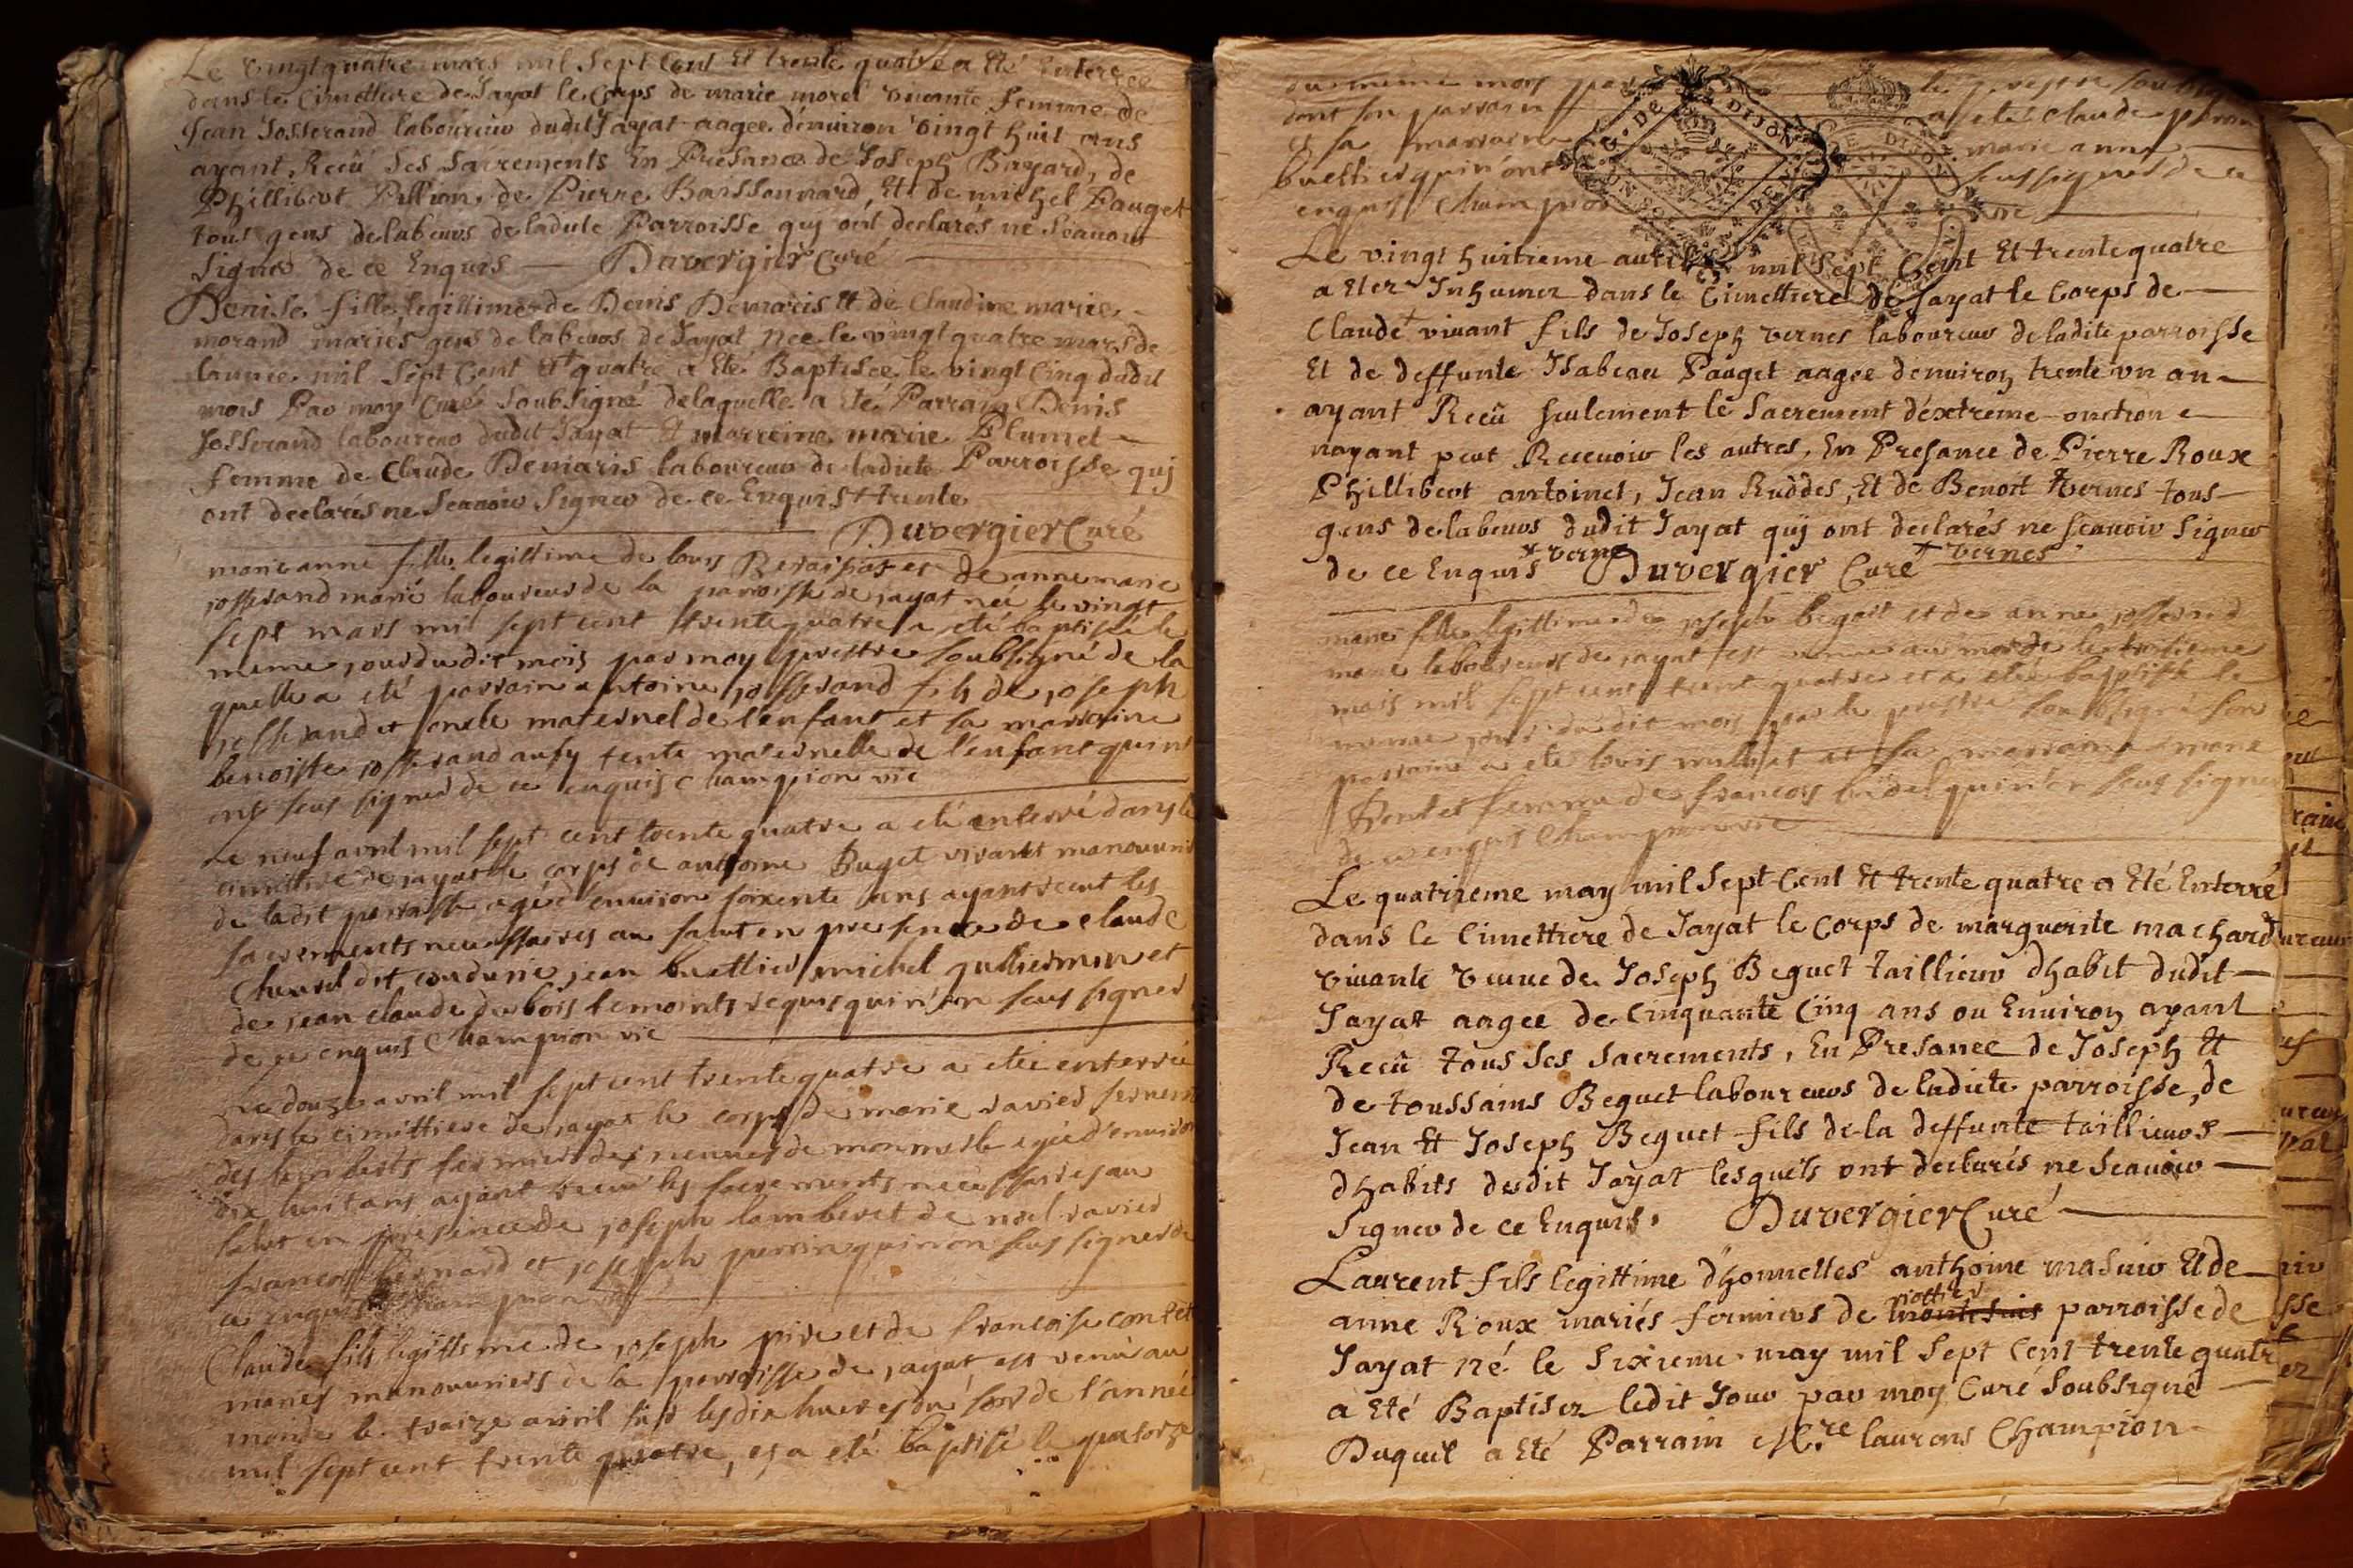 Le vingt quatre mars mil Sept Cent Et trente quatre a Eté Enterrée
dans le Cimettiere de Jayat le Corps de marie morel vivante femme de
Jean Josserand laboureur dudit Jayat aagee d'environ vingt huit ans
ayant Recû Ses Sacrements En Presance de Joseph Bayard, de
Phillibert Pillion, de Pierre Boissonnard, Et de michel Pauget
tous gens delabeurs deladite Parroisse qui ont declarés ne Scauoir
Signer de ce Enquis Duvergier Curé
Denise fille legittime de Denis Demaris Et de Claudine marie
morand mariés gens de labeurs de Jayat Nee le vingt quatre mars de
lannee mil Sept Cent Et+ quatre a Eté Baptisee le vingt Cinq dudit
mois Par moy Curé Soubsigné delaquelle a Eté Parrain Denis
Josserand laboureur dudit Jayat Et marreine marie Plumet
femme de Claude Demaris laboureur de ladite Parroisse quj
ont declarés ne Scauoir Signer de ce Enquis + trente
Duvergier Curé
marie anne fille legittime de louis et de anne marie
josserand marié laboureurs de la parroisse de jayat née le vingt
sept mars mil sept cent trente quatre a eté baptisée le
meme jour du dit mois par moy prestre soubsigné de la
quelle a eté parrain antoine josserand fils de joseph
josserand et oncle maternel de l'enfant et sa marraine
benoiste josserand aussy tente maternelle de l'enfant qui n'
ont seus signer de ce enquis Champion vic
Le neuf avril mil sept cent trente quatre a eté enterré dans le
cimettiere de jayat le corps de anthoine Buget vivant manouurier
de ladit parroisse agé d'enuiron soixente ans ayant receut les
sacrements necessaires au salut en presence de claude
Chaurel dit condurie, jean buellier michel gulliermin et
de jean claude dubois temoints requis qui n'on seus signer
de ce enquis Champion vic
Le douze avril mil sept cent trente quatre a eteé enterrée
dans le cimittiere de jayat le corps de marie ravier servente
des lamberts fermier des de agée d'enuiron
dix huit ans ayant receut les sacrements necessaires au
salut en presence de joseph lamberet de noel ravier
francois bernard et joseph perrin qui n'on seus signer de
ce enquis Champion
Claude fils legittime de joseph pire et de francoise contet
mariés manouuriers de la parroisse de jayat est venu au
monde le traize avril sur les dix heures du soir de l'année
mil sept cent trente quatre, et a eté baptisé le quatorze
du meme mois par le prestre
dont son parrain a eté Claude
et sa marraine marie anne
buellier qui n'ont seus signer de ce
enquis Champion
Le vingt huitieme auril mil Sept Cent Et trente quatre
a Eter Inhumer dans le Cimettiere de Jayat le Corps de
Claude + vivant fils de Joseph vernes laboureur de ladite parroisse
Et de deffunte Isabeau Pauget aagee denuiron trente vn an
ayant Recû seulement le Sacrement dextreme onction
nayant peut Receuoir les autres, En Presance de Pierre Roux
Phillibert antoinet, Jean Ruddes, Et de Benoit vernes tous
gens de labeurs dudit Jayat quj ont declarés ne scauoir Signer
de ce Enquis + verne Duvergier Curé + vernes
marie fille legittime de joseph et de anne josserand
marie laboureurs de jayat est venue au monde le troisieme
mais mil sept cent trent quatre et a eté baptisé le
meme jour du dit mois par le prestre soubsigné son
parrain a eté louis et sa marraine marie
femme de francois qui n'on seus signer
de ce enquis Champion vic
Le quatrieme may mil Sept Cent Et trente quatre a Eté Enterré
dans le Cimettiere de Jayat le Corps de marguerite machard
vivante veuue de Joseph Beguet taillieur dhabit dudit
Jayat aagee de Cinquante Cinq ans ou Enuiron ayant
Recû tous ses Sacrements, En Presance de Joseph Et
de toussains Beguet laboureurs de ladicte parroisse, de
Jean Et Joseph Beguet fils de la deffunte taillieurs
dhabits dudit Jayat lesquels ont declarés ne Scauoir
Signer de ce Enquis. Duvergier Curé
Laurent fils legittime d'honnettes anthoine masuir Et de
anne Roux mariés fermiers de parroisse de
Jayat né le Sixieme may mil Sept Cent trente quatre
a Eté Baptiser ledit Jour par moy Curé Soubsigné
Duquel a Eté Parrain Mre laurans Champion